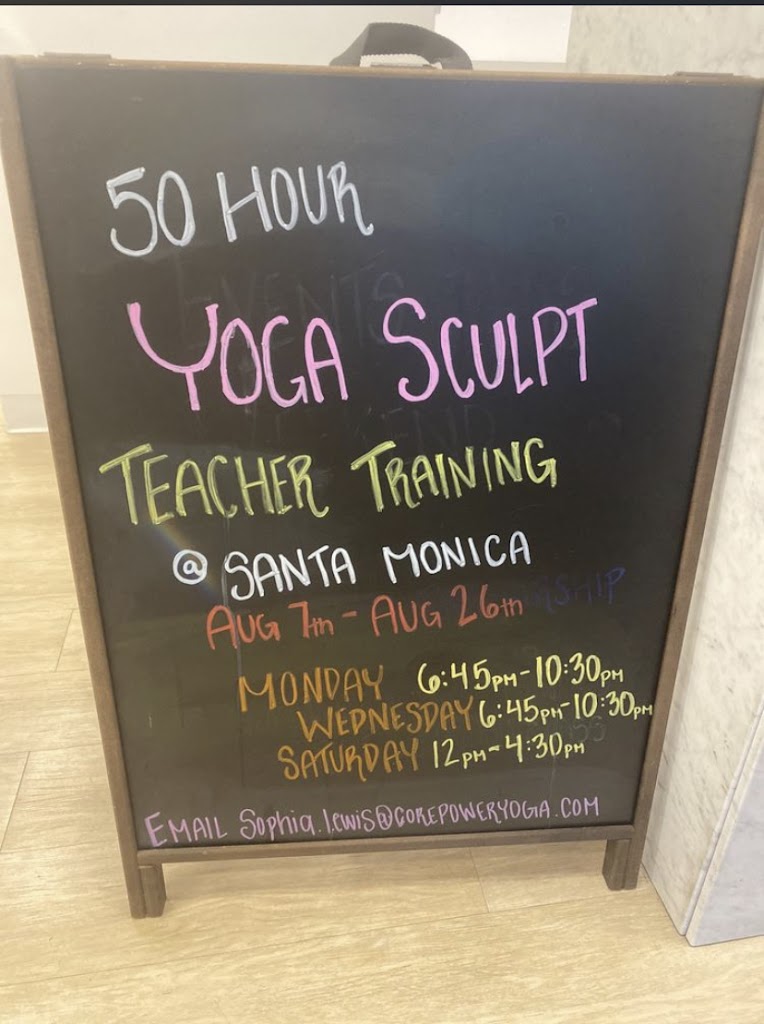 50 HOUR
YOGA SCULPT
TEACHER TRAINING
@ SANTA MONICA
AUG 7th - AUG 26th
MONDAY 6:45PM-10:30PM
WEDNESDAY 6:45PM-10:30PM
SATURDAY 12PM-4:30PM
EMAIL Sophia.lewis@COREPOWERYOGA.COM